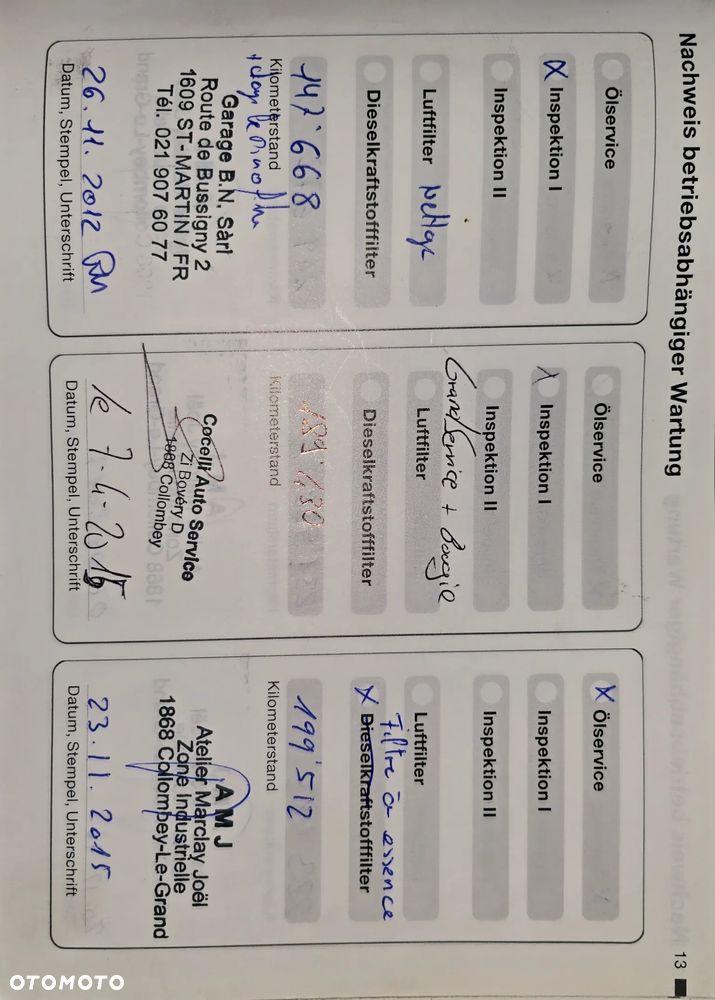 Nachweis betriebsabhängiger Wartung
13
Ölservice
X Inspektion I
Inspektion II
Luftfilter Nettoyé
Dieselkraftstofffilter
147'668
Kilometerstand
Garage B.N. Sàrl
Route de Bussigny 2
1609 ST-MARTIN / FR
Tél. 021 907 60 77
26.11.2012
Datum, Stempel, Unterschrift
Ölservice
X Inspektion I
Inspektion II
Grand Service + Bougie
Luftfilter
Dieselkraftstofffilter
Kilometerstand
Cocelli Auto Service
ZI Bovéry D
1868 Collombey
le 7-4-2015
Datum, Stempel, Unterschrift
X Ölservice
Inspektion I
Inspektion II
Luftfilter
Filtre à essence
X Dieselkraftstofffilter
199'512
Kilometerstand
AMJ
Atelier Marclay Joël
Zone Industrielle
1868 Collombey-Le-Grand
23.11.2015
Datum, Stempel, Unterschrift
OTOMOTO